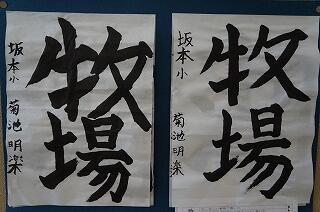 牧場
坂本小 菊池明楽
牧場
坂本小 菊池明楽